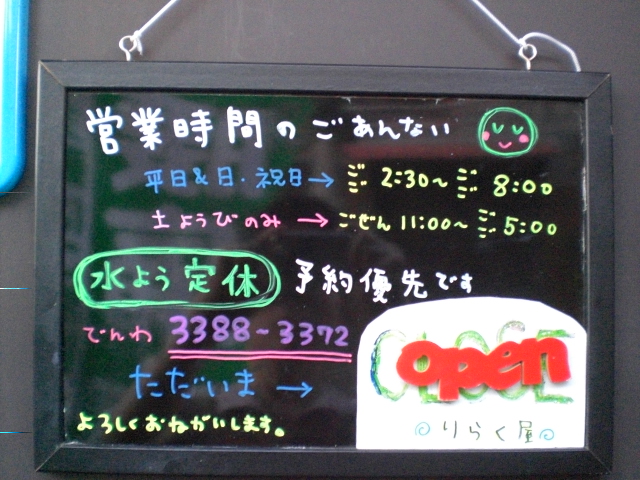 営業時間のごあんない
平日&日・祝日→ ごご 2:30～ごご 8:00
土ようびのみ → ごぜん 11:00～ごご 5:00
水よう定休 予約優先です
でんわ 3388-3372
ただいま →
open
りらく屋
よろしくおねがいします。